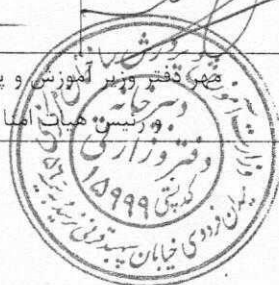 مهر دفتر وزیر آموزش و پ
و رئیس هیات امنا
وزارت آموزش و پرورش
دبیرخانه
دفتر وزارتی
کدپستی ۱۵۹۹۹
میدان فردوسی خیابان سپهبد قرنی نرسیده به